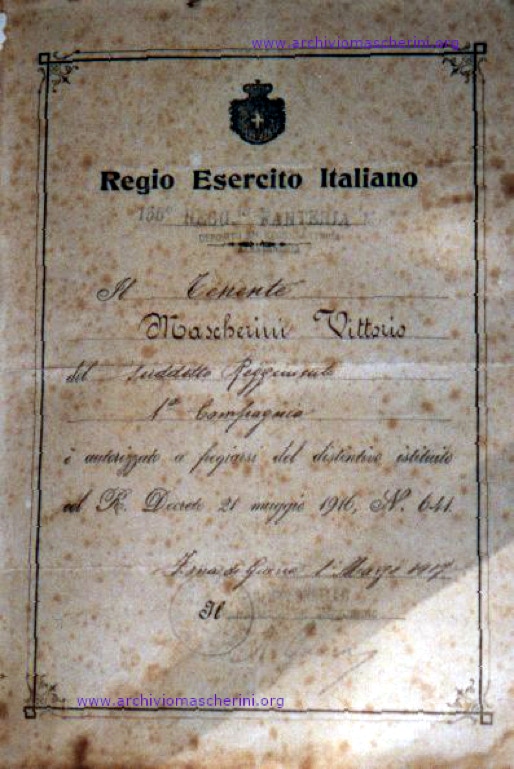 www.archiviomascherini.org
Regio Esercito Italiano
REGG.ᵗᵒ FANTERIA
Il Tenente
Mascherini Vittorio
del suddetto Reggimento
1ª Compagnia
è autorizzato a fregiarsi del distintivo istituito
col R. Decreto 21 maggio 1916, N. 641.
Zona di Guerra 1 Marzo 1917
Il
www.archiviomascherini.org